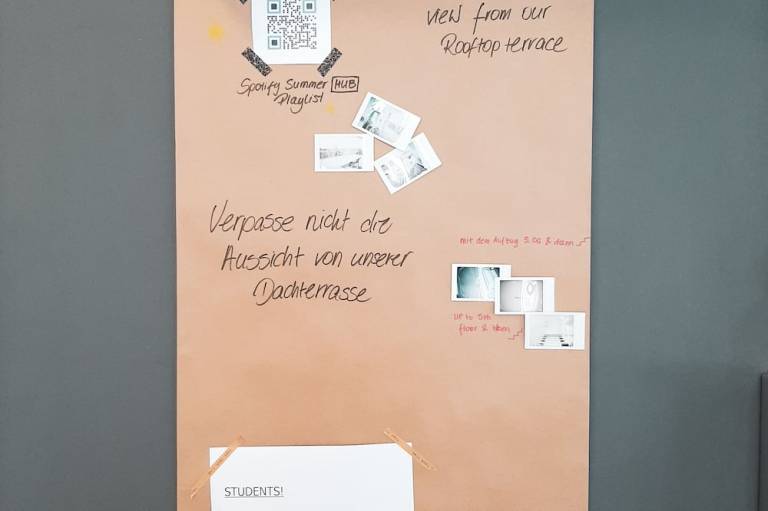 view from our
Rooftop terrace
Spotify Summer HUB
Playlist
Verpasse nicht die
Aussicht von unserer
Dachterrasse
mit dem Aufzug 5. OG & dann
UP to 5th
floor & then
STUDENTS!